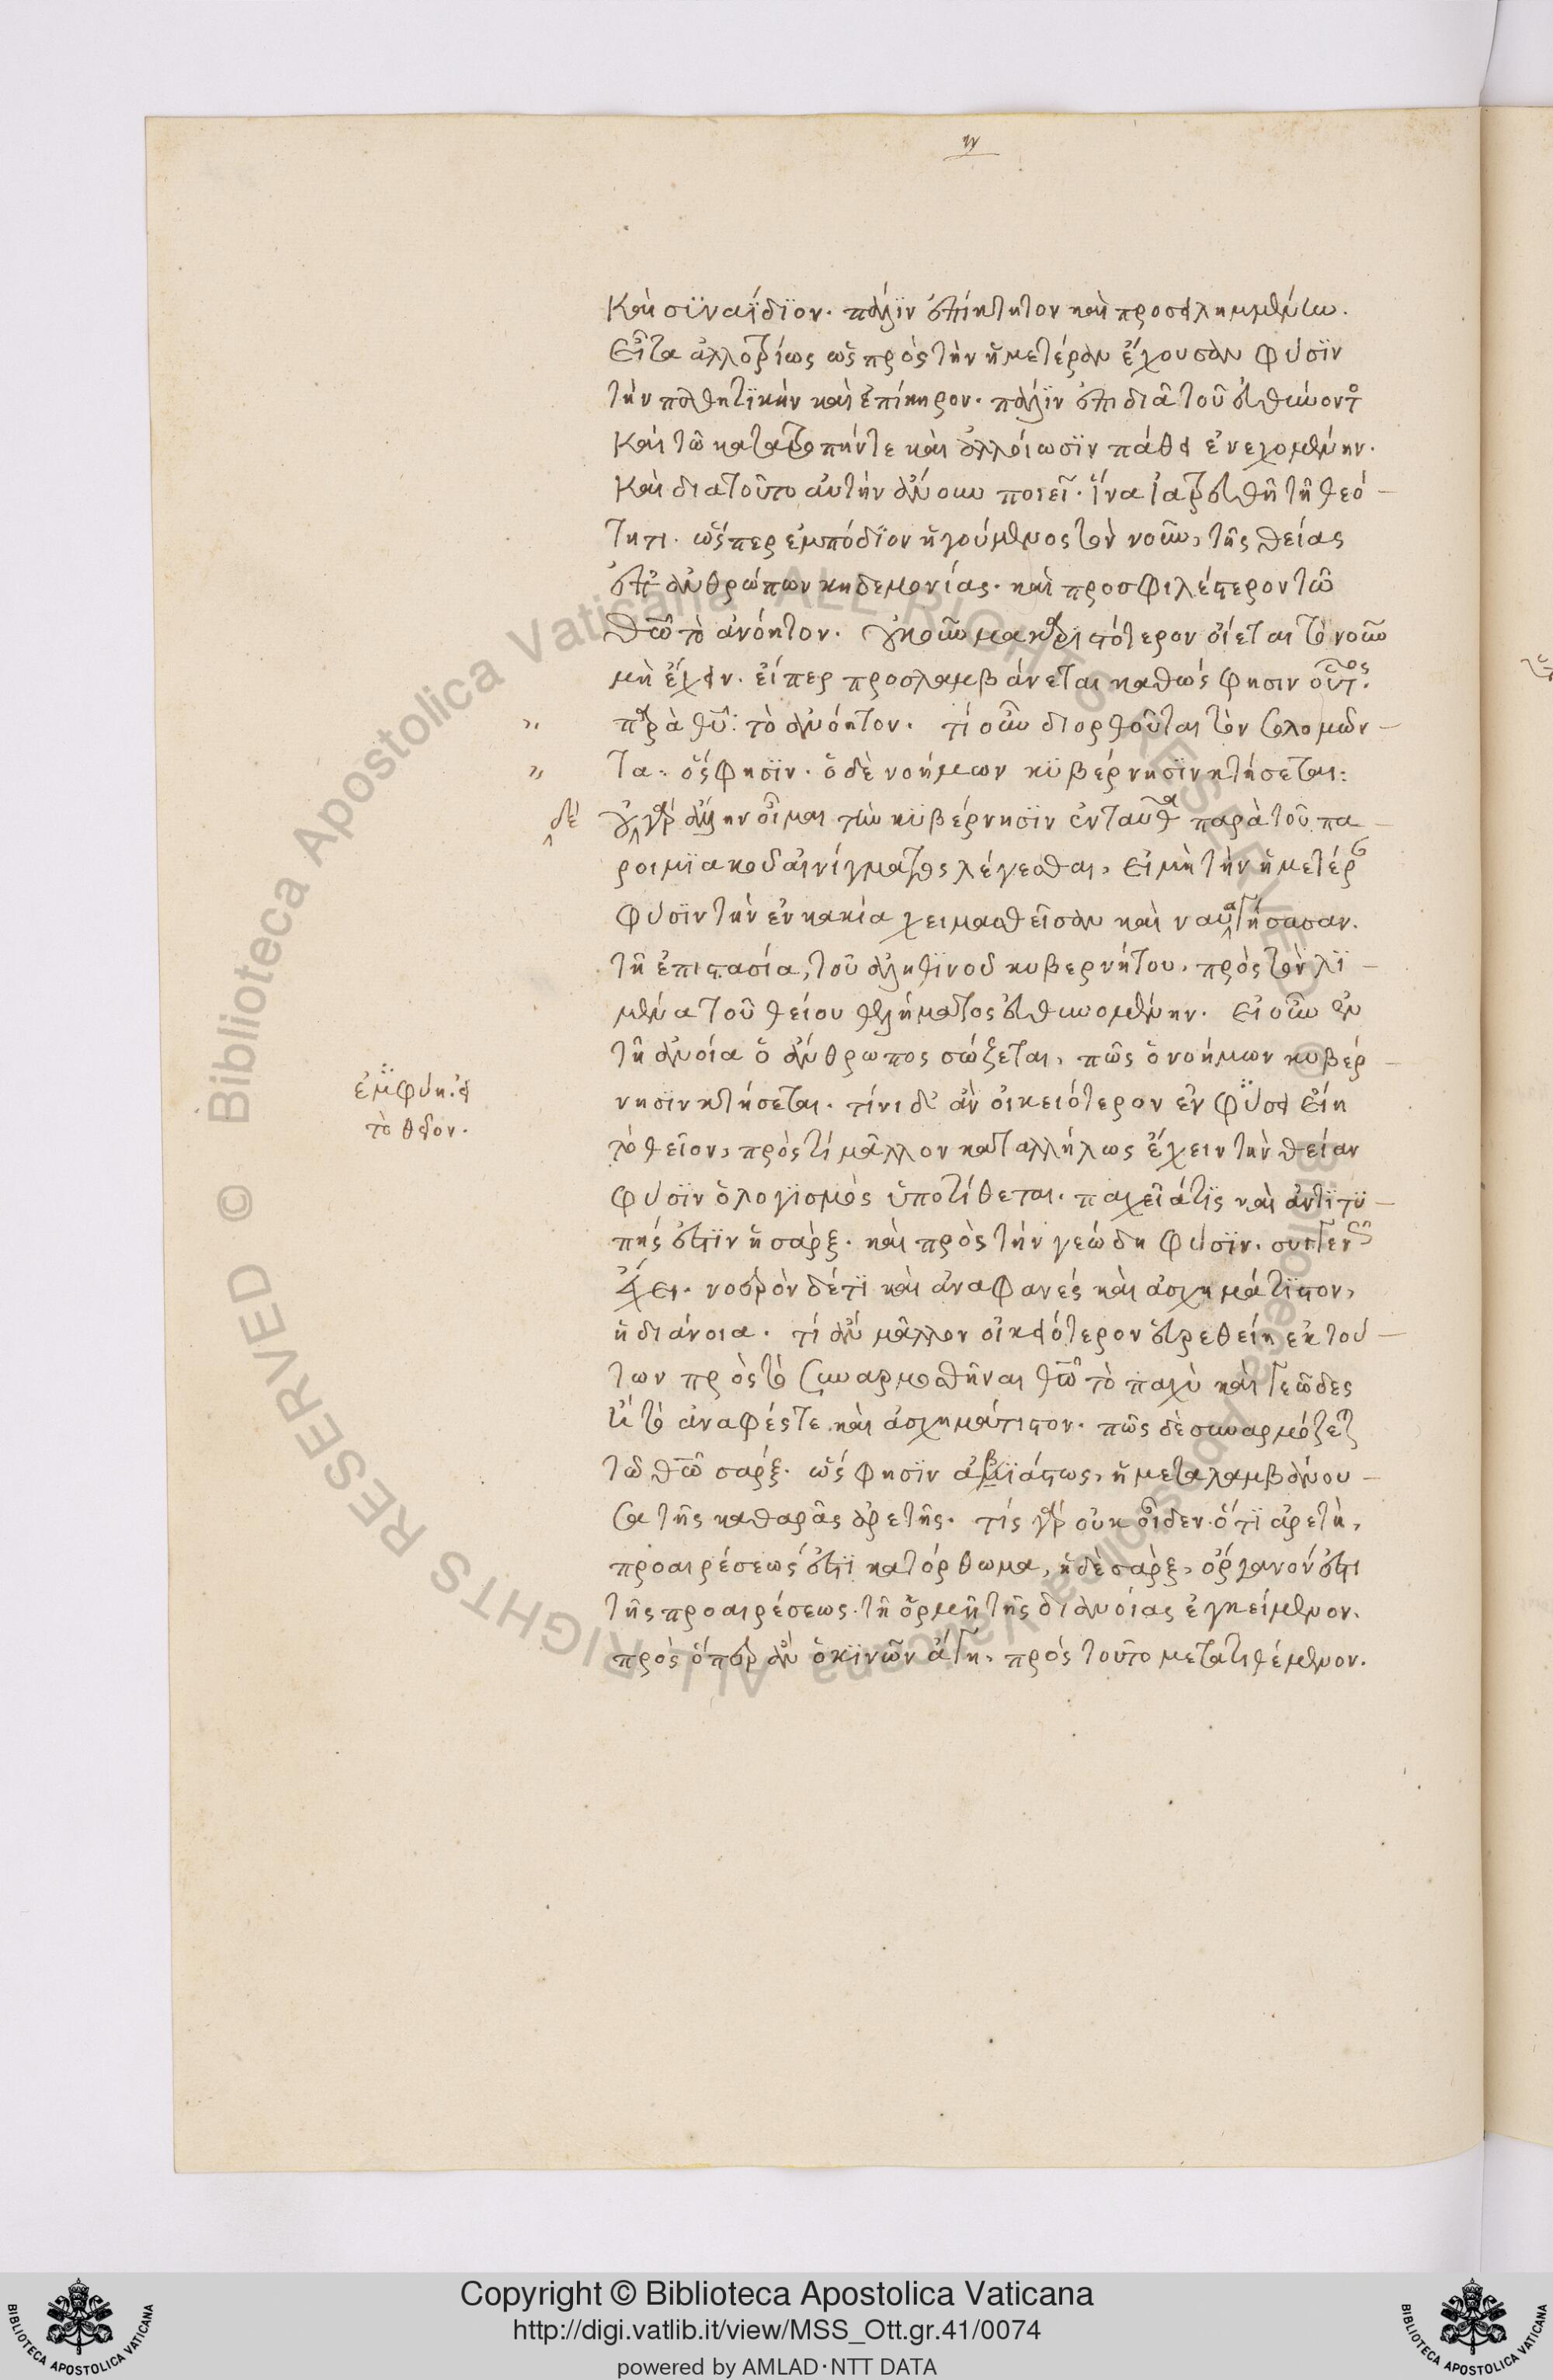 Καὶ σϊναΐδϊον. πάλϊν ἐπίκτητον καὶ προσειλημμένην.
Εἶτα ἀλλοτρίως ὡς πρὸς τὴν ἡμετέραν ἔχουσαν φύσϊν
τὴν παθητϊκὴν καὶ ἐπίκηρον. πάλϊν ἐπὶ διὰ τοῦ εὐθύνοντο
Καὶ τῶ κατατροπήν τε καὶ ἀλλοίωσϊν πάθει ἐνεχομένην.
Καὶ διατοῦτο αὐτὴν ἄνουν ποιεῖ. ἵνα ἰατρευθῆ τῆ θεό-
τητι. ὥσπερ ἐμπόδϊον ἡγούμενος τὸν νοῦν, τῆς θείας
ἐπ' ἀνθρώπων κηδεμονίας. καὶ προσφιλέστερον τῶ
θῶ τὸ ἀνόητον. οὐκοῦν μακαριστότερον οἴεται τὸ νοῦν
μὴ ἔχειν. εἴπερ προσλαμβάνεται καθώς φησιν οὗτος.
" παρὰ θυ: τὸ ἀνόητον. τί οὖν διορθοῦται τὸν σολομῶν-
" τα. ὅς φησϊν. ὁ δὲ νοήμων κϋβέρνησϊν κτήσεται:
δὲ οὐ γὰρ ἄλλην οἶμαι τὴν κϋβέρνησϊν ἐνταῦθα παρὰ τοῦ πα-
ροιμϊακοῦ αἰνίγματος λέγεσθαι, εἰ μὴ τὴν ἡμετέραν
φύσϊν τὴν ἐν κακία χειμασθεῖσαν καὶ ναυαγήσασαν.
τῆ ἐπιστασία, τοῦ ἀληθϊνοῦ κυβερνήτου, πρὸς τὸν λϊ-
μένα τοῦ θείου θελήματος εὐθυνομένην. Εἰ οὖν ἐν
τῆ ἀνοία ὁ ἄνθρωπος σώζεται, πῶς ὁ νοήμων κυβέρ-
ἐμφύη.ει
το θεῖον.
νησιν κτήσεται. τίνι δ' ἂν οἰκειότερον ἐν φύσει εἴη
τὸ θεῖον, πρὸς τί μᾶλλον καταλλήλως ἔχειν τὴν θείαν
φύσϊν ὁ λογϊσμὸς ὑποτίθεται. παχεῖά τϊς καὶ ἀντϊτϋ-
πής ἐστιν ἡ σὰρξ. καὶ πρὸς τὴν γεώδη φύσϊν. συγγενῶς
ἔχει. νοερὸν δέ τϊ καὶ ἀναφανές καὶ ἀσχημάτϊστον,
ἡ διάνοια. τί ἂν μᾶλλον οἰκειότερον εὑρεθείη ἐκ τού-
των πρὸς τὸ συναρμοθῆναι θῶ τὸ παχὺ καὶ γεῶδες
ἢ τὸ ἀναφές τε καὶ ἀσχημάτιστον. πῶς δὲ συναρμόζεται
τῶ θῶ σαρξ. ὥς φησϊν ἀβϊάστως, ἡ μεταλαμβάνου-
σα τῆς καθαρᾶς ἀρετῆς. τίς γὰρ οὐκ οἶδεν. ὅτϊ ἀρετὴ,
προαιρέσεώς ἐστϊ κατόρθωμα, ἡ δὲ σὰρξ, ὄργανόν ἐστι
τῆς προαιρέσεως. τῆ ὁρμῆ τῆς διανοίας ἐγκείμενον.
πρὸς ὅπερ ἂν ὁ κϊνῶν ἄγη, πρὸς τοῦτο μετατιθέμενον.
Copyright © Biblioteca Apostolica Vaticana
http://digi.vatlib.it/view/MSS_Ott.gr.41/0074
powered by AMLAD·NTT DATA